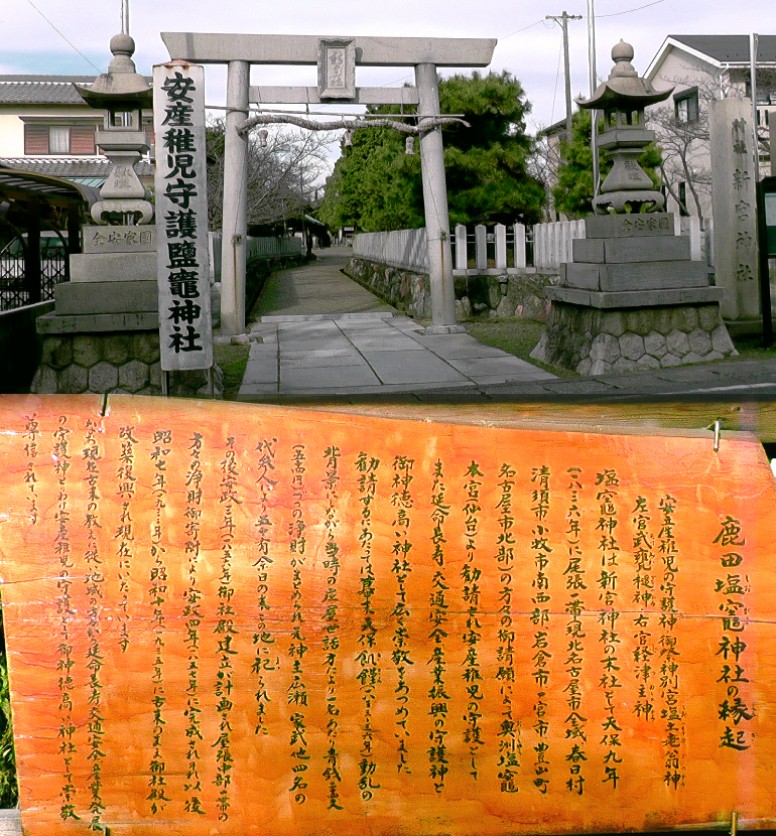 安産稚児守護鹽竈神社
新宮神社
鹿田塩竈神社の縁起
安産稚児の守護神御祭神別宮塩土老翁神
左宮武甕槌神・右宮経津主神
塩竈神社は新宮神社の末社として天保九年
(一八三八年)に尾張一帯現北名古屋市全域春日村
清須市小牧市南西部岩倉市一宮市豊山町
名古屋市北部)の方々の御請願によって奥州塩竈
本宮(仙台)より勧請され安産稚児の守護として
また延命長寿交通安全産業振興の守護神と
御神徳高い神社として広く崇敬をあつめていました
勧請するにあたっては幕末天保飢饉(一八三三年)動乱の
背景にしながら当時の庄屋世話方たり一名あたり
(五百円)づつの浄財がまとめられ元神主広瀬家式他四名の
代参人により五ヶ月余日の末この地に祀られました
その後安政三年(一八五六年)御社殿建立が計画され尾張部一帯の
方々の浄財御寄附により安政四年(一八五七年)に完成されれ以後
昭和七年(一九三二年)から昭和十年(一九三五年)に古来のまま御社殿が
改築復興され現在にいたっています
から現在古来の教えに従い地域の方から延命長寿交通安全産業発展
の守護神となり安産稚児の守護として御神徳高い神社として崇敬
尊信されています